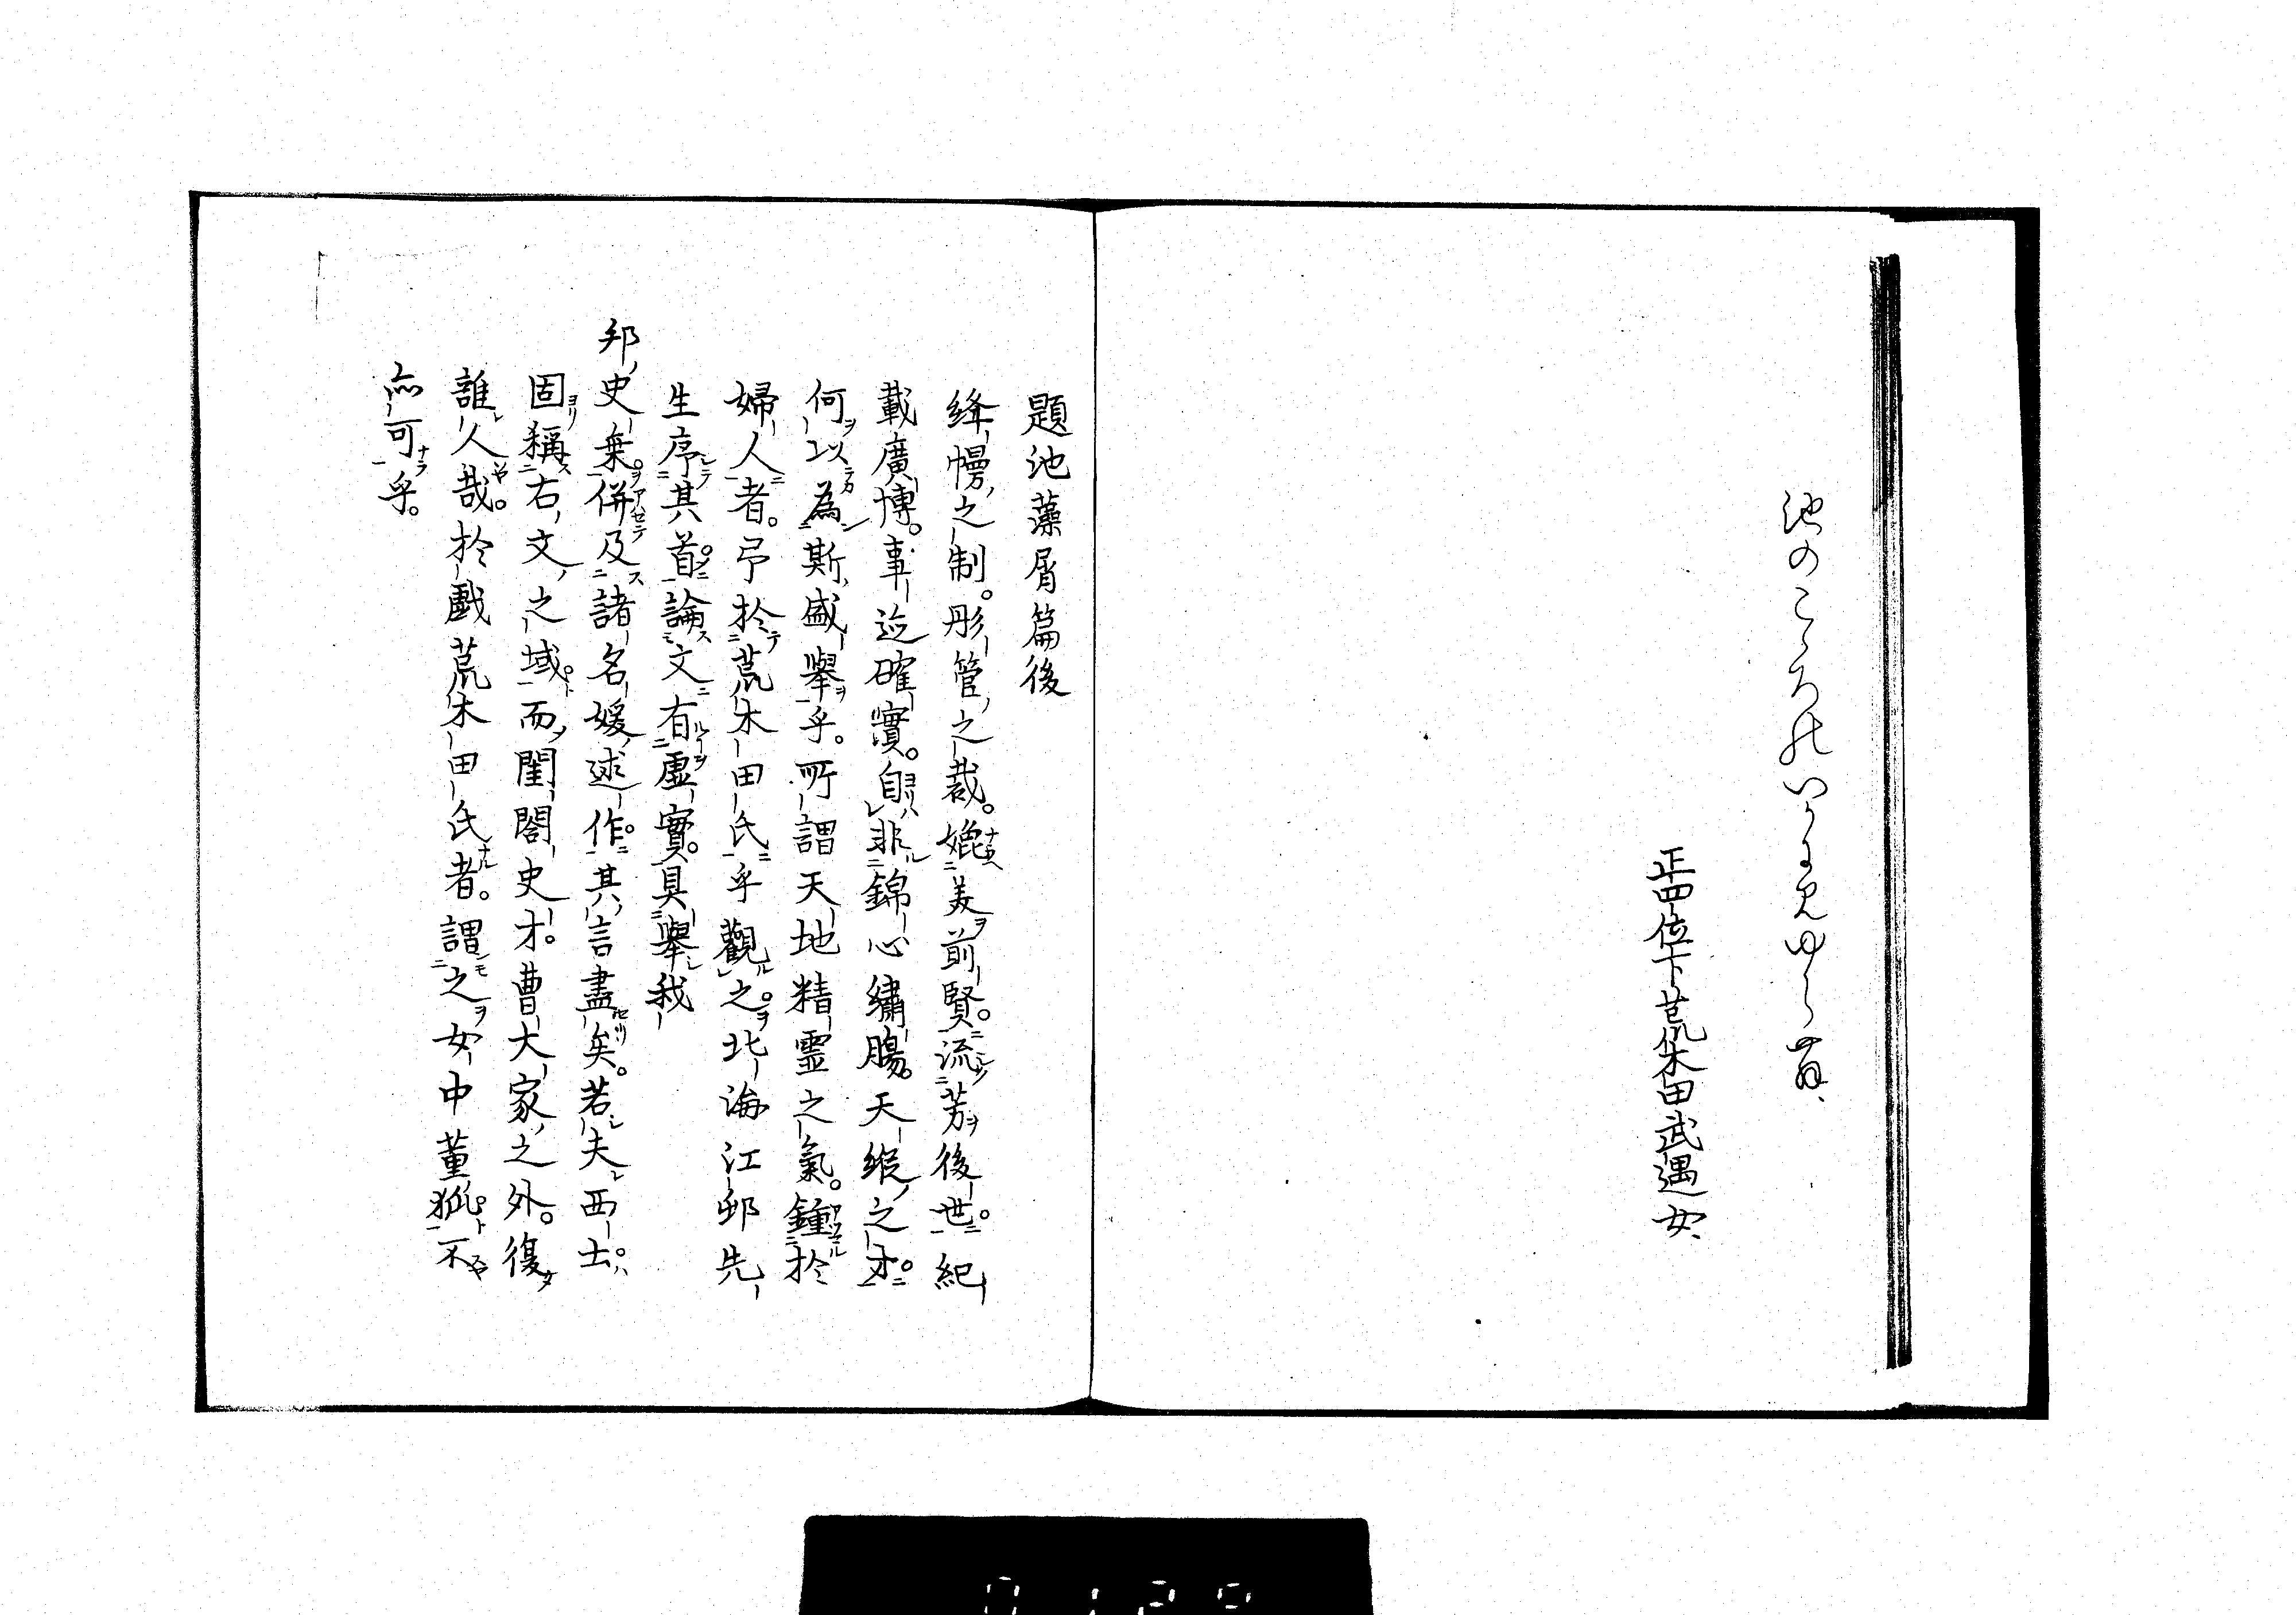 池のこゝろのいかにみゆらん
正四位下荒木田武遇女
題池藻屑篇後
絳幔之制。彤管之裁。媲美前賢。流芳後世。紀
載廣博。事迹確實。自非錦心繡腸。天縱之才。
何以為斯盛舉乎。所謂天地精霊之氣。鍾於
婦人者。予於荒木田氏乎觀之。北海江邨先
生序其首。論文有虛實。具舉我
邦史乗。併及諸名媛述作。其言盡矣。若夫西士
固稱右文之域。而閨閤史才。曹大家之外。復
誰人哉。於戲荒木田氏者。謂之女中董狐。不
亦可乎。